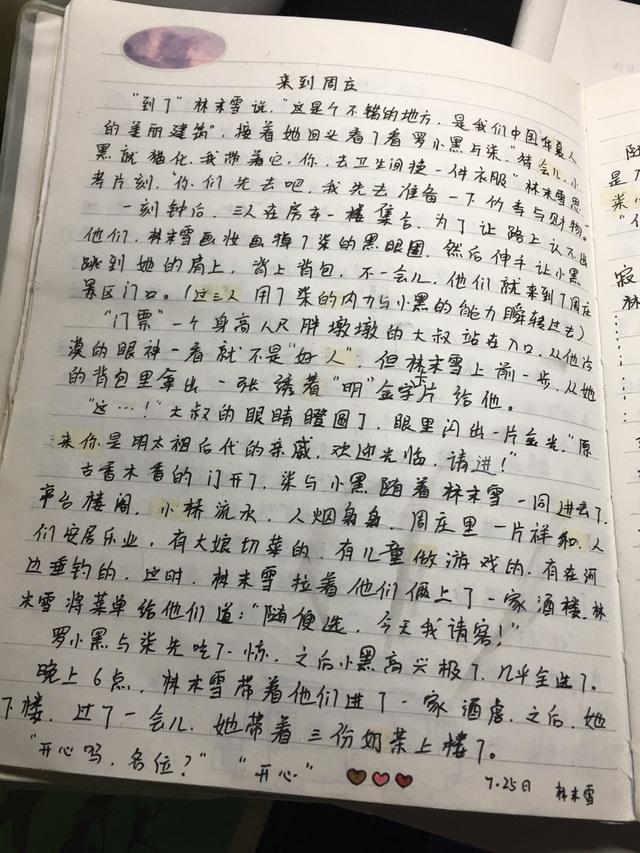 来到周庄
"到了"林末雪说,"这是个不错的地方,是我们中国华夏人
的美丽建筑",接着她回头看了看罗小黑与柒,"待会儿,小
黑就猫化,我带着它,你,去卫生间换一件衣服"林末雪思
考片刻,"你们先去吧,我先去准备一下竹寺与财物。"
一刻钟后,三人在房车一楼集合,为了让路上认不出
他们,林末雪画妆画掉了柒的黑眼圈,然后伸手让小黑
跳到她的肩上,背上背包,不一会儿,他们就来到了周庄
景区门口。(这三人用了柒的内力与小黑的能力瞬转过去)
"门票"一个身高八尺胖墩墩的大叔站在入口,从他冷
漠的眼神一看就不是"好人",但林末雪上前一步,从她
的背包里拿出一张誘着"明"金字卡片给他。
"这…!"大叔的眼睛瞪圆了,眼里闪出一片金光,"原
来你是明太祖后代的亲戚,欢迎光临,请进!"
古香木香的门开了,柒与小黑随着林末雪一同进去了,
平台楼阁,小桥流水,人烟袅袅,周庄里一片祥和,人
们安居乐业,有大娘切菜的,有儿童做游戏的,有在河
边垂钓的,这时,林末雪拉着他们俩上了一家酒楼,林
末雪将菜单给他们道:"随便选,今天我请客!"
罗小黑与柒先吃了一惊,之后小黑高兴极了,几乎全选了。
晚上6点,林末雪带着他们进了一家酒店,之后,她
下楼,过了一会儿,她带着三份奶茶上楼了。
"开心吗,各位?" "开心"
7.25日 林末雪